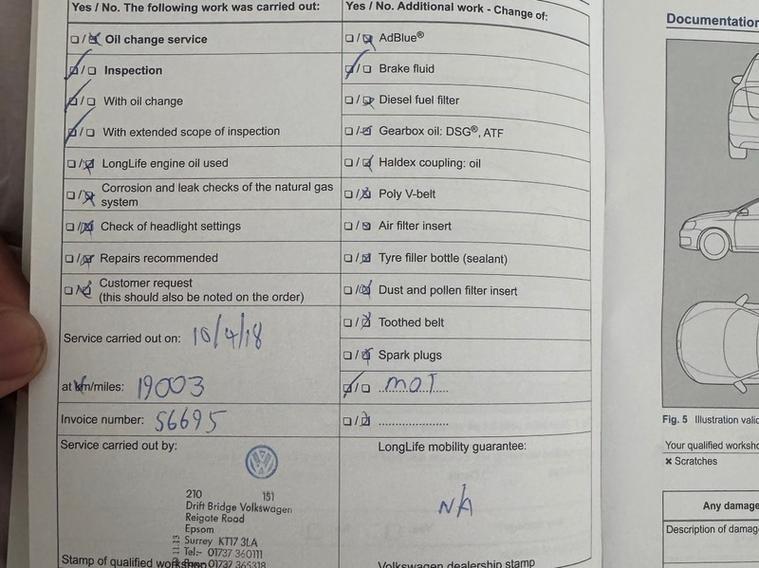 Yes / No. The following work was carried out:
Yes / No. Additional work - Change of:
Oil change service
AdBlue®
Inspection
Brake fluid
With oil change
Diesel fuel filter
With extended scope of inspection
Gearbox oil: DSG®, ATF
LongLife engine oil used
Haldex coupling: oil
Corrosion and leak checks of the natural gas
system
Poly V-belt
Check of headlight settings
Air filter insert
Repairs recommended
Tyre filler bottle (sealant)
Customer request
(this should also be noted on the order)
Dust and pollen filter insert
Toothed belt
Service carried out on: 10/4/18
Spark plugs
at km/miles: 19003
MOT
Invoice number: 56695
Service carried out by:
LongLife mobility guarantee:
N/A
210 151
Drift Bridge Volkswagen
Reigate Road
Epsom
Surrey KT17 3LA
Tel:- 01737 360111
01737 365318
Stamp of qualified
Volkswagen dealership stamp
Documentation
Fig. 5 Illustration
Your qualified
× Scratches
Any damage
Description of